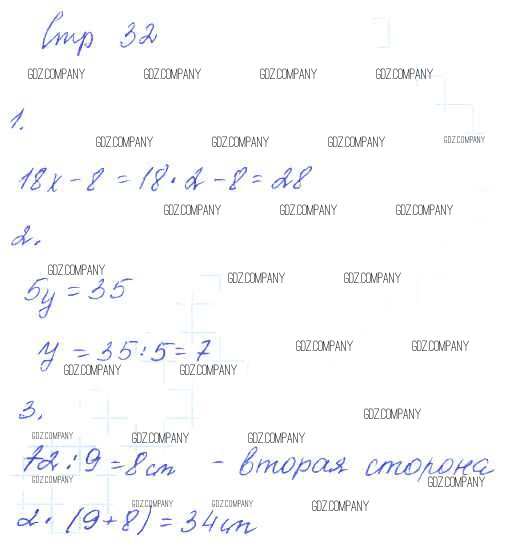 Стр 32
GDZ.COMPANY GDZ.COMPANY GDZ.COMPANY GDZ.COMPANY
1.
GDZ.COMPANY GDZ.COMPANY GDZ.COMPANY GDZ.COMPANY
18x - 8 = 18 · 2 - 8 = 28
GDZ.COMPANY GDZ.COMPANY GDZ.COMPANY
2.
GDZ.COMPANY GDZ.COMPANY GDZ.COMPANY
5y = 35
y = 35 : 5 = 7
GDZ.COMPANY GDZ.COMPANY
GDZ.COMPANY GDZ.COMPANY
3.
GDZ.COMPANY
GDZ.COMPANY GDZ.COMPANY GDZ.COMPANY
72 : 9 = 8 см - вторая сторона
GDZ.COMPANY GDZ.COMPANY
GDZ.COMPANY GDZ.COMPANY GDZ.COMPANY
2 · (9 + 8) = 34 см